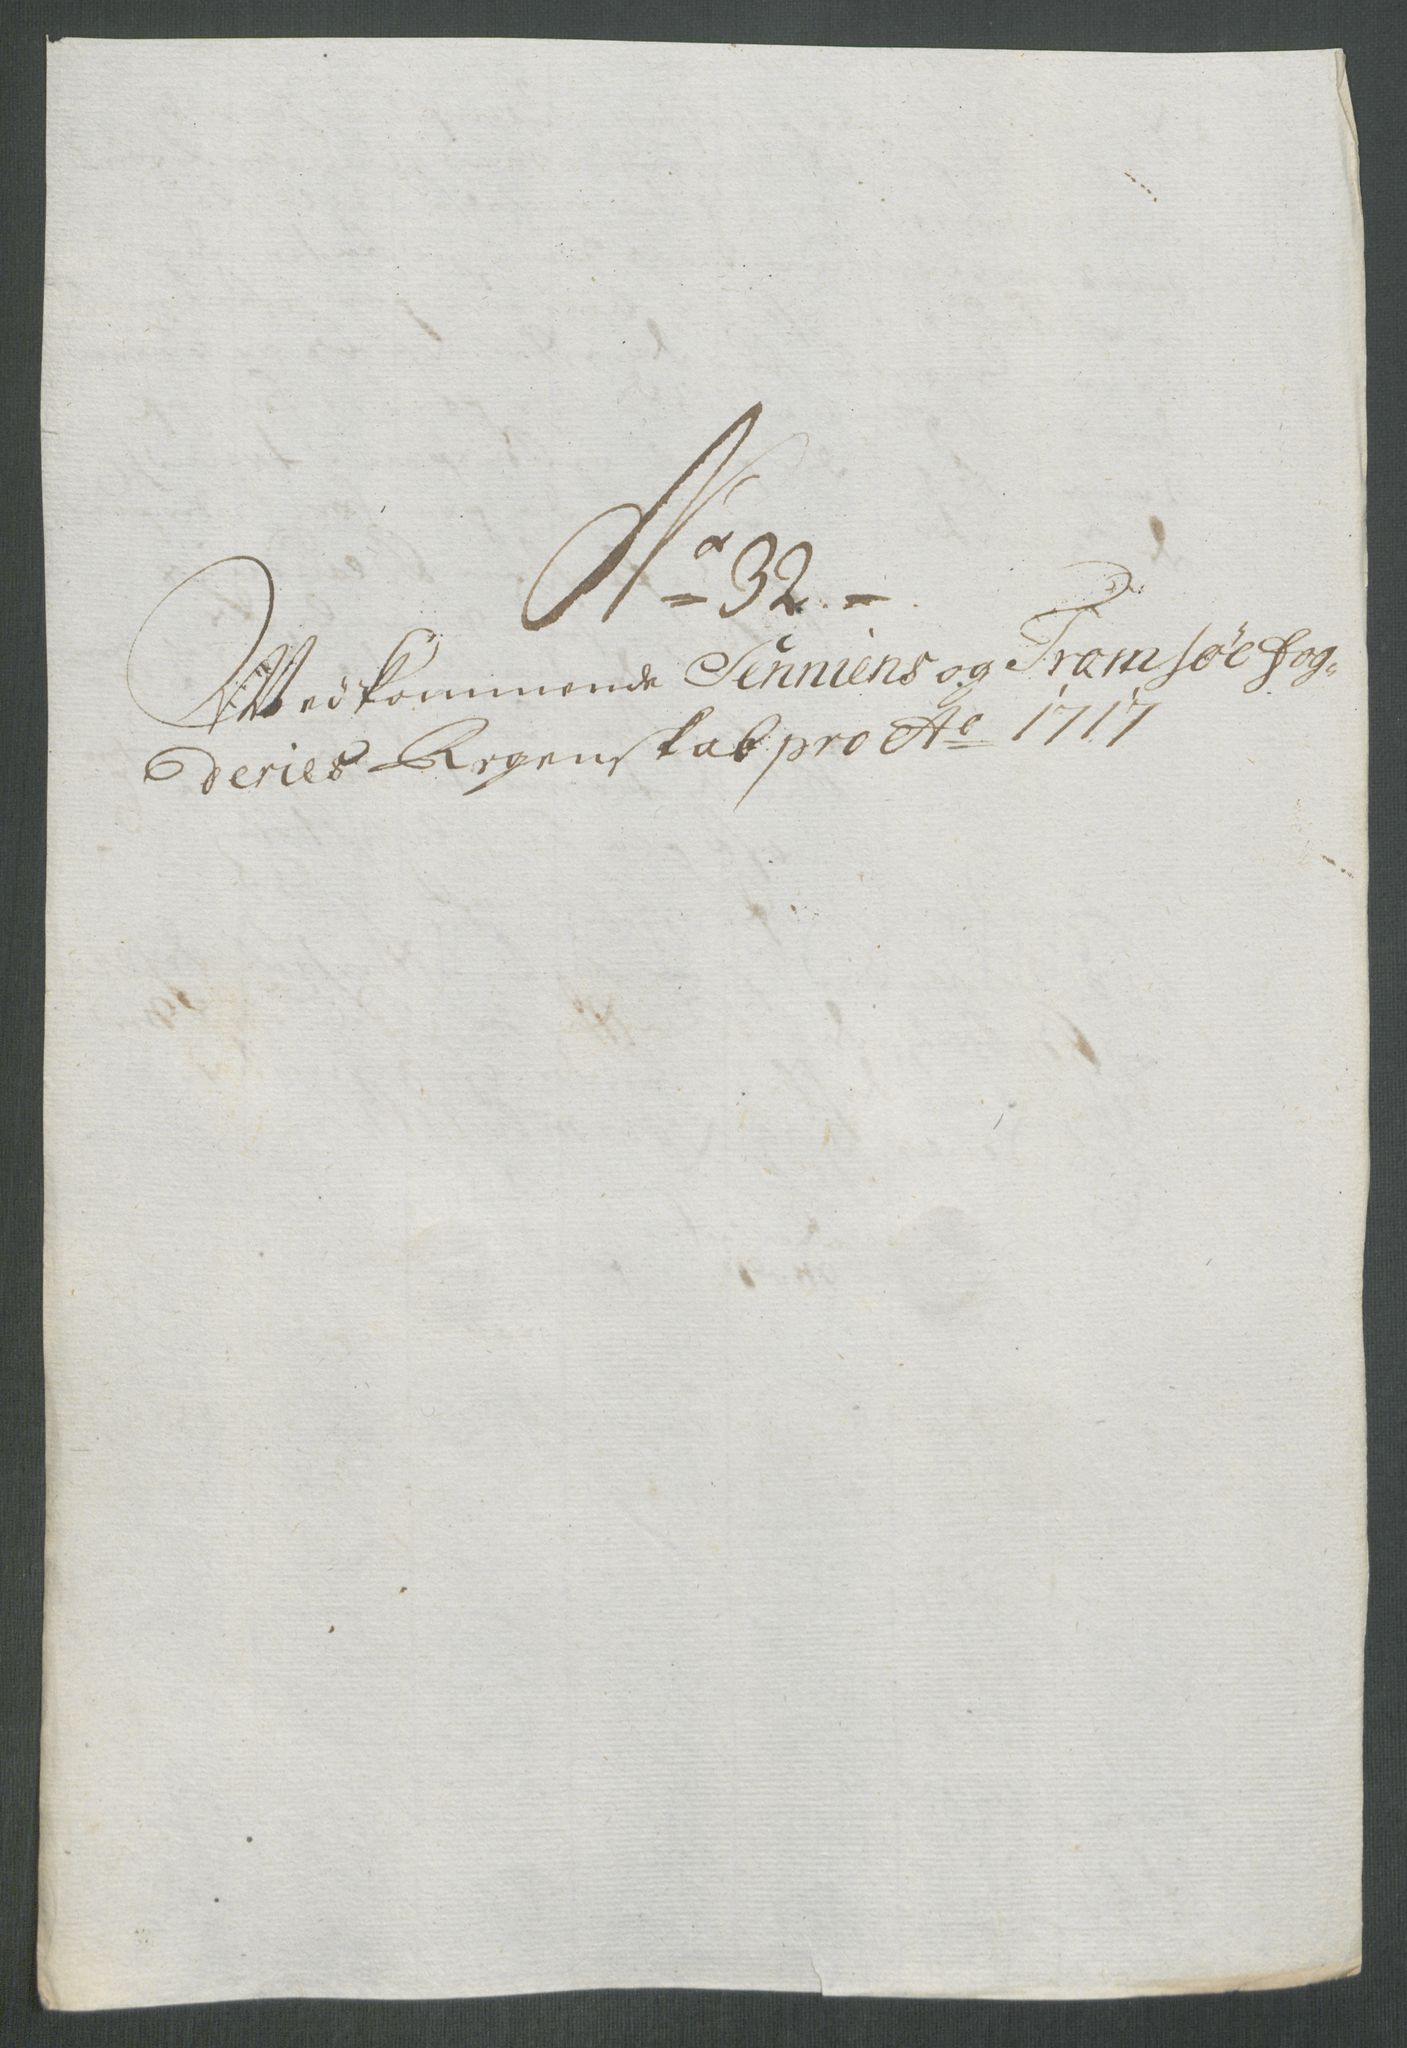 No 32.
Vedkommende Senniens og Tromsøe fog-
deries Regenskab pro Ao 1717